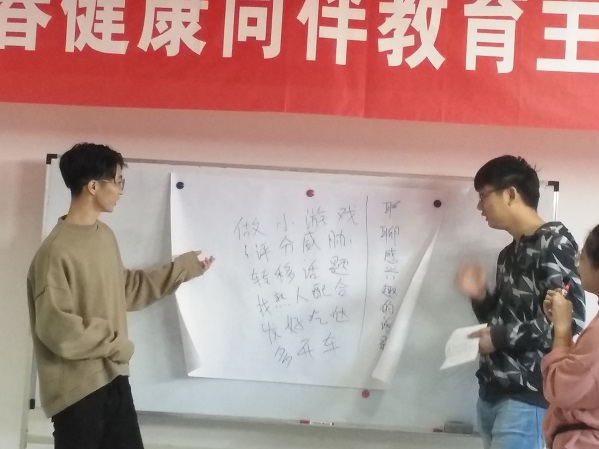 春健康同伴教育主
做小游戏
评分威胁
转移话题
找熟人配合
发好吃
多开车
聊聊感兴趣的话题